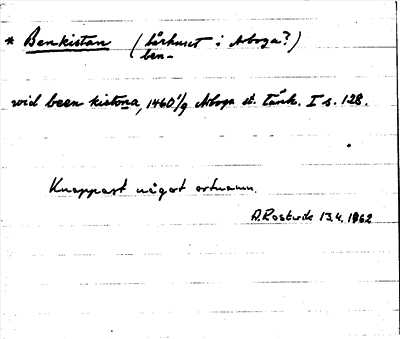 * Benkistan (bårhuset i Arboga?)
ben-
vid been kistona, 1460 1/9 Arboga st. Tänk. I s. 128.
Knappast något ortnamn.
A. Rostvik 13.4.1962